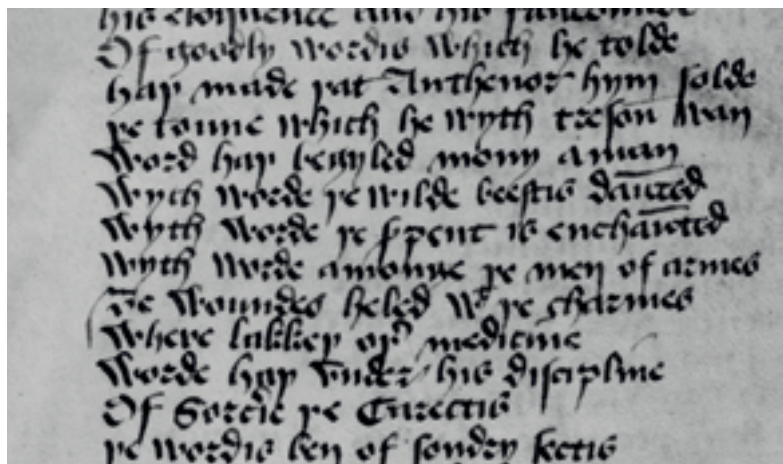 his eloquence and his
Of goodly wordis which he tolde
haþ made þat Anthenor hym solde
þe toune which he wyth tresou̅ wan
Word haþ begyled mony a man
Wyth worde þe wilde beestis dau̅ted
Wyth worde þe ẜpent is enchau̅ted
Wyth worde amonge þe men of armes
þe woundes heled wͭ þe charmes
Where lakkeþ oþ͛ medicine
Worde haþ vnder his discipline
Of Sorc͛ie þe Carectis
þe wordis ben of sondry sectis